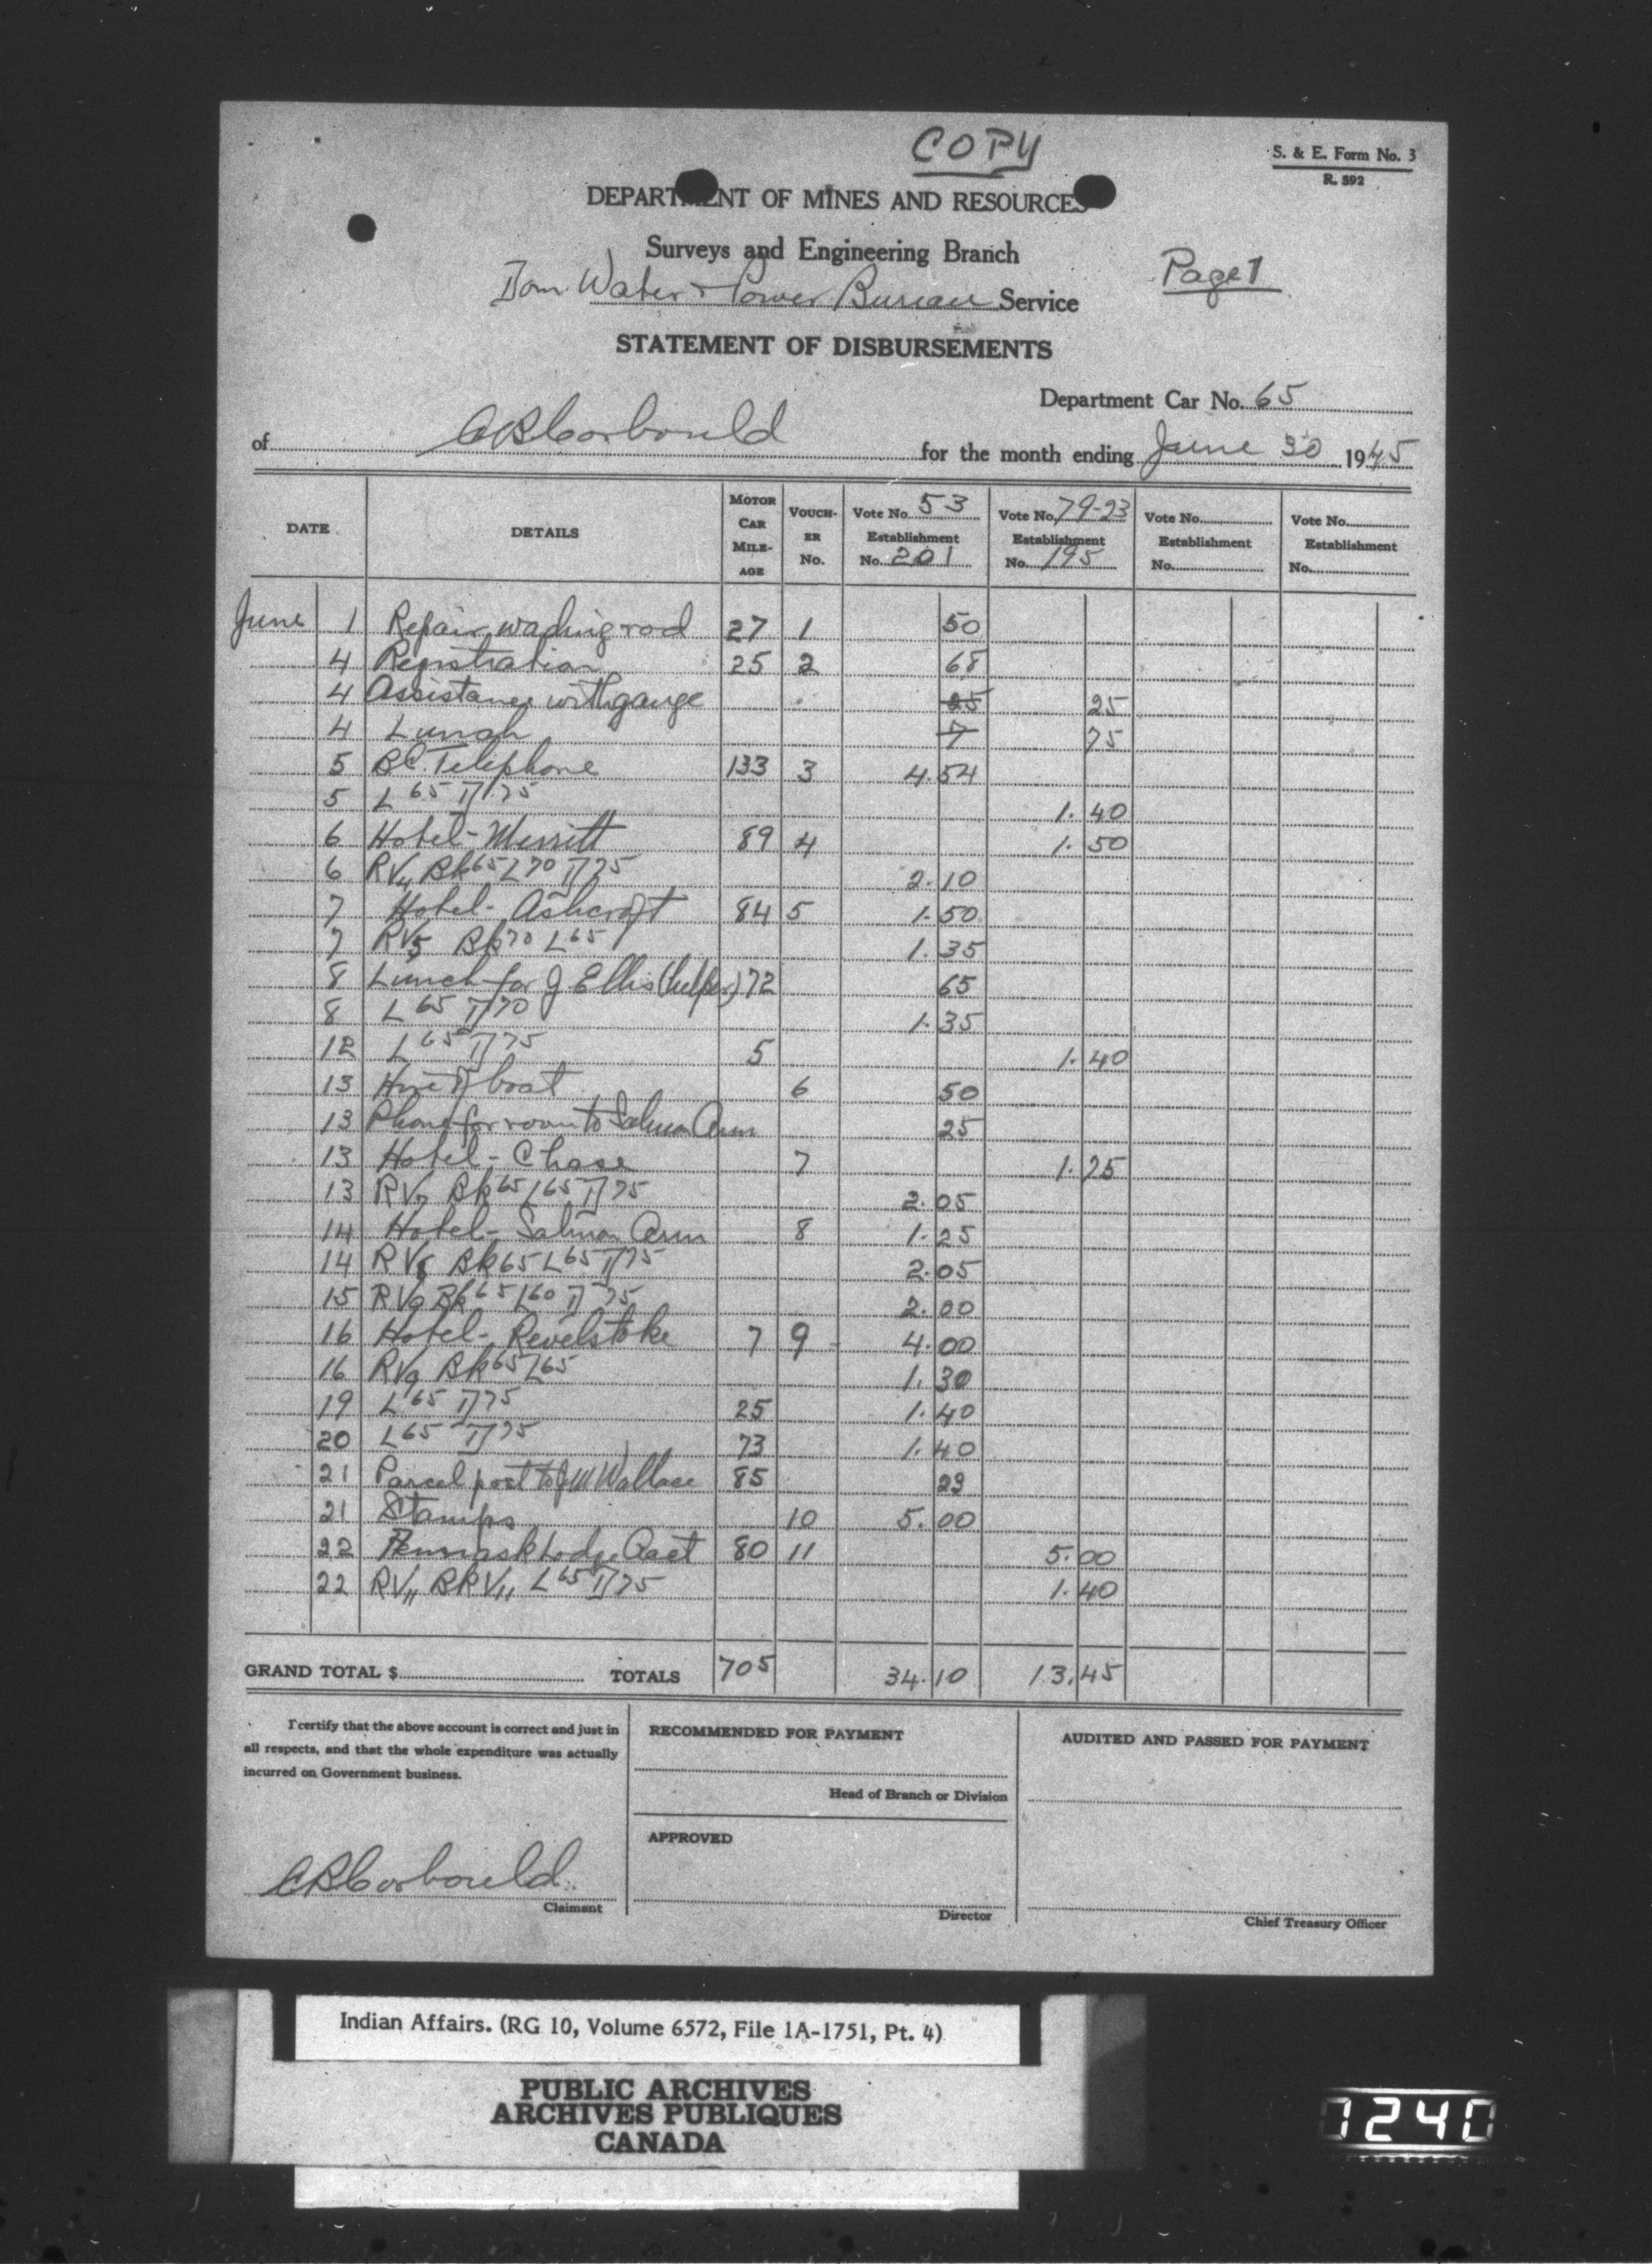 COPY
S. & E. Form No. 3
R. 592
DEPARTMENT OF MINES AND RESOURCES
Surveys and Engineering Branch
Dom. Water & Power Bureau Service
Page 1
STATEMENT OF DISBURSEMENTS
Department Car No. 65
of CB Corbould for the month ending June 30 1945
DATE DETAILS MOTOR CAR MILE-AGE VOUCH-ER No. Vote No. 53 Establishment No. 201 Vote No. 79-23 Establishment No. 195 Vote No. Establishment No. Vote No. Establishment No.
June 1 Repair wading rod 27 1 50
4 Registration 25 2 68
4 Assistance with gauge 25 25
4 Lunch 7 75
5 BC. Telephone 133 3 4.54
5 L 65 D 75 1.40
6 Hotel - Merritt 89 4 1.50
6 RV4 Bk 65 L 70 D 75 2.10
7 Hotel - Ashcroft 84 5 1.50
7 RV5 Bk 70 L 65 1.35
8 Lunch for J Ellis (helper) 72 65
8 L 65 D 70 1.35
12 L 65 D 75 5 1.40
13 Hire of boat 6 50
13 Phone for room to Salmon Arm 25
13 Hotel - Chase 7 1.25
13 RV7 Bk 65 L 65 D 75 2.05
14 Hotel - Salmon Arm 8 1.25
14 RV8 Bk 65 L 65 D 75 2.05
15 RV9 Bk 65 L 60 D 75 2.00
16 Hotel - Revelstoke 7 9 4.00
16 RV9 Bk 65 L 65 1.30
19 L 65 D 75 25 1.40
20 L 65 D 75 73 1.40
21 Parcel post to J W Wallace 85 23
21 Stamps 10 5.00
22 Pennask Lodge 80 11 5.00
22 RV11 BKV11 L 65 D 75 1.40
GRAND TOTAL $ TOTALS 705 34.10 13.45
I certify that the above account is correct and just in
all respects, and that the whole expenditure was actually
incurred on Government business.
CB Corbould
Claimant
RECOMMENDED FOR PAYMENT
Head of Branch or Division
APPROVED
Director
AUDITED AND PASSED FOR PAYMENT
Chief Treasury Officer
Indian Affairs. (RG 10, Volume 6572, File 1A-1751, Pt. 4)
PUBLIC ARCHIVES
ARCHIVES PUBLIQUES
CANADA
1240